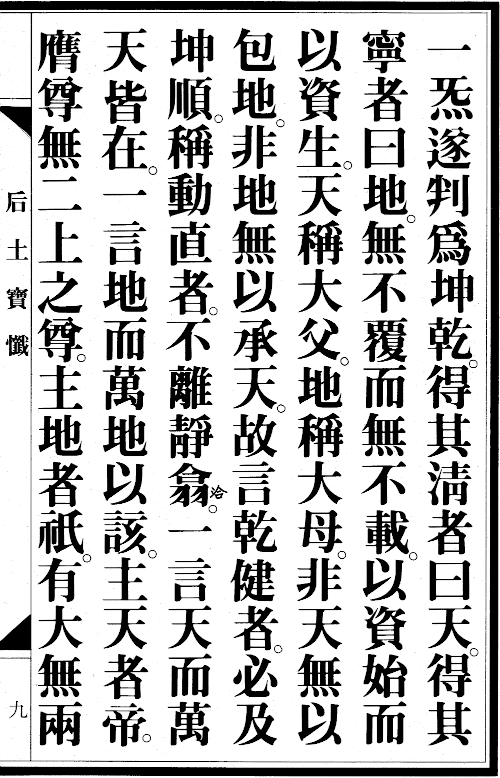 一炁遂判爲坤乾。得其淸者曰天。得其
寧者曰地。無不覆而無不載。以資始而
以資生。天稱大父。地稱大母。非天無以
包地。非地無以承天。故言乾健者。必及
坤順。稱動直者。不離靜翕洽。一言天而萬
天皆在。一言地而萬地以該。主天者帝。
膺尊無二上之尊。主地者祇。有大無兩
后土寶懺
九